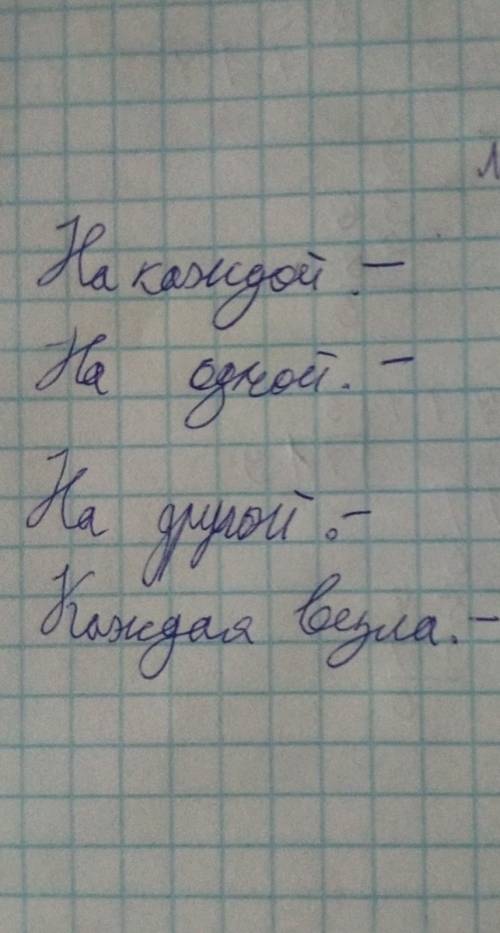 На каждой. —
На одной. —
На другой. —
Каждая везла. —